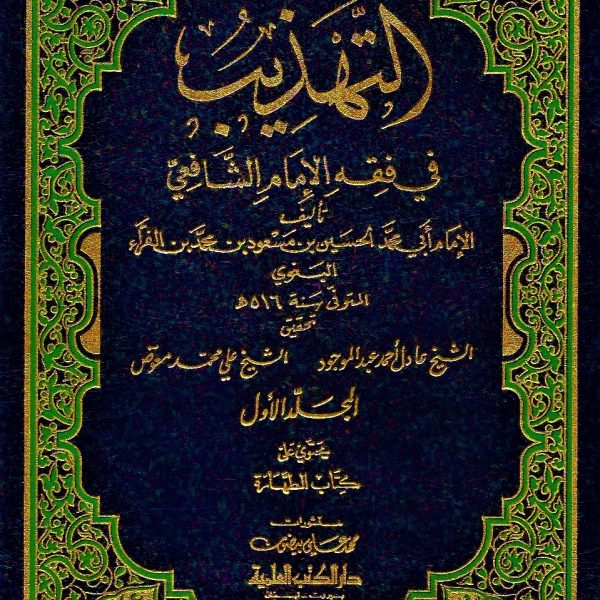 التَّهذِيبُ
في فِقهِ الإمَامِ الشَّافِعِيِّ
تأليف
الإمَام أبي محمَّد الحسَين بن مَسعُود بن محمَّد بن الفرَّاء
البغوي
المتوفى سَنة ٥١٦هـ
تحقيق
الشيخ عادل أحمد عبد الموجود الشيخ علي محمّد معوّض
المجَلّد الأول
يحتوي على
كِتَاب الطهَارَة
منشورات
محمد علي بيضون
دار الكتب العلمية
بيروت - لبنان